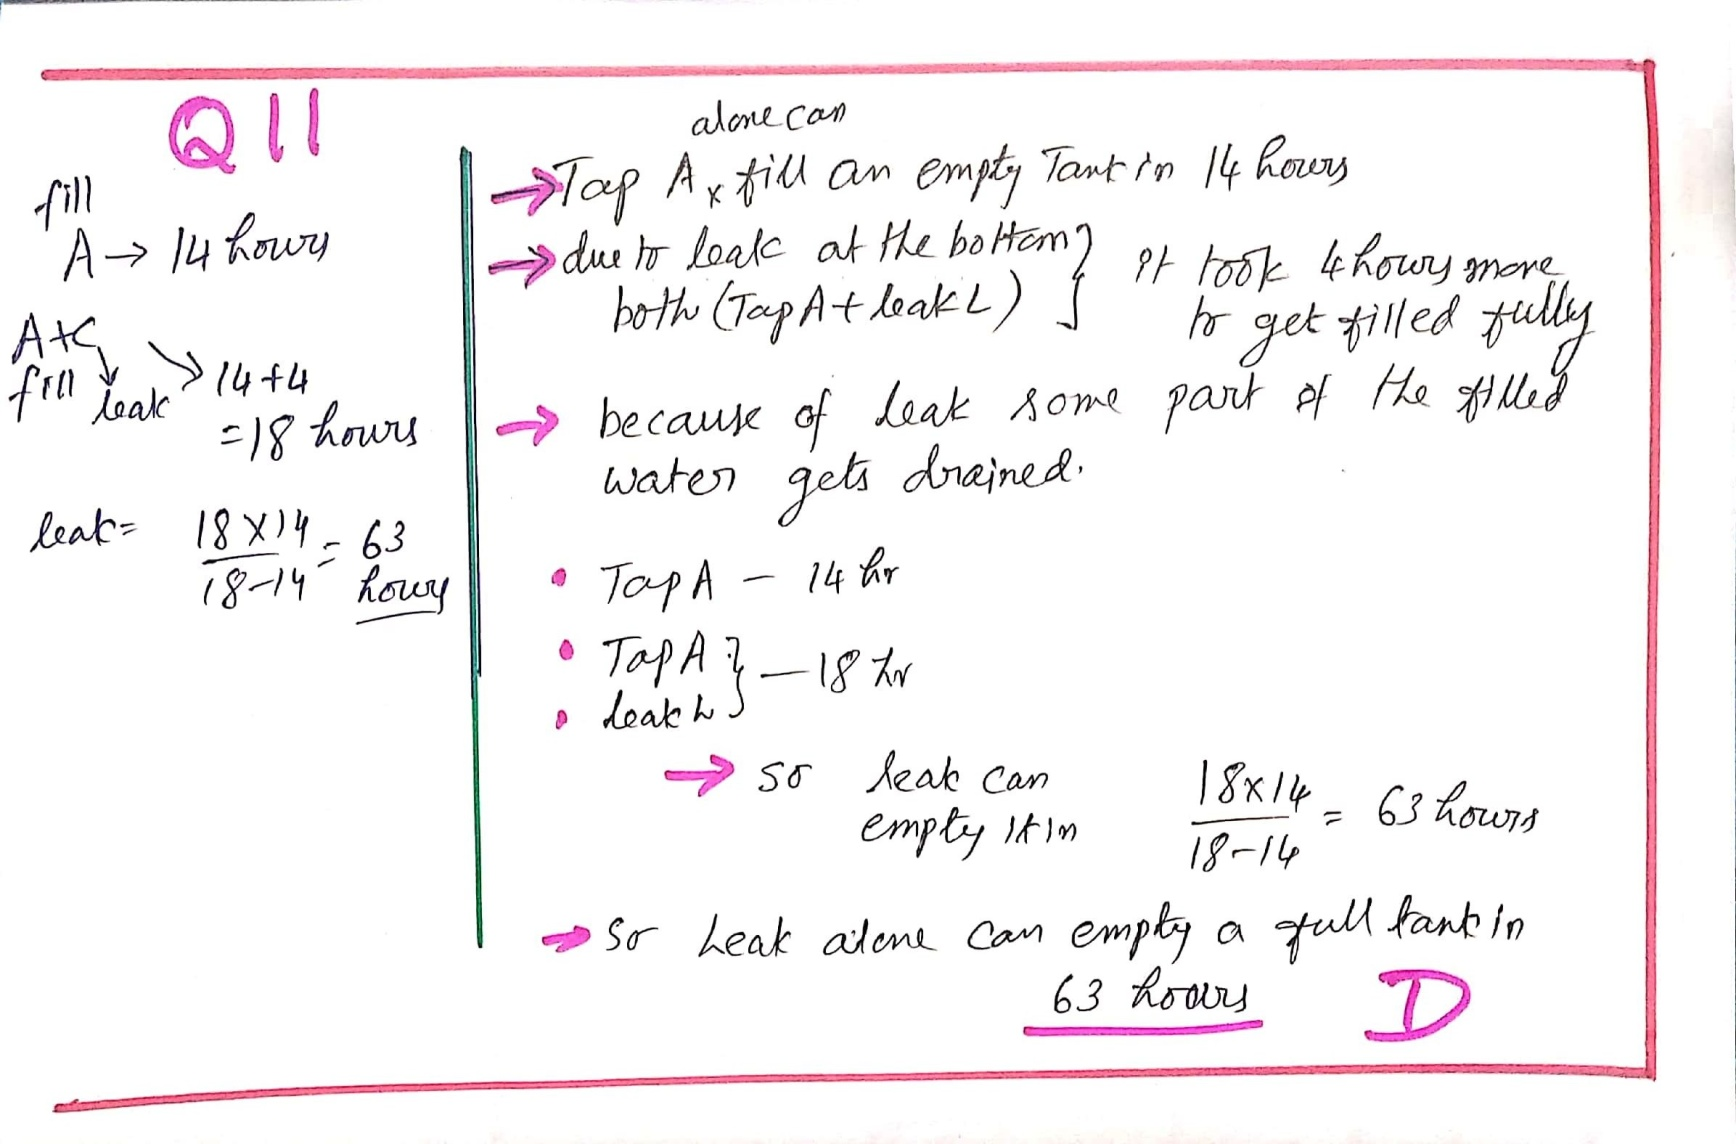 Q11
fill
A → 14 hours
A+C
fill leak → 14+4
=18 hours
leak = 18×14 / 18-14 = 63 hours
alone can
→ Tap A × fill an empty Tank in 14 hours
→ due to leak at the bottom } it took 4 hours more
both (Tap A + leak L) } to get filled fully
→ because of leak some part of the filled
water gets drained.
• Tap A – 14 hr
• Tap A } – 18 hr
• leak L }
→ so leak can
empty it in 18×14 / 18-14 = 63 hours
→ So Leak alone can empty a full tank in
63 hours D